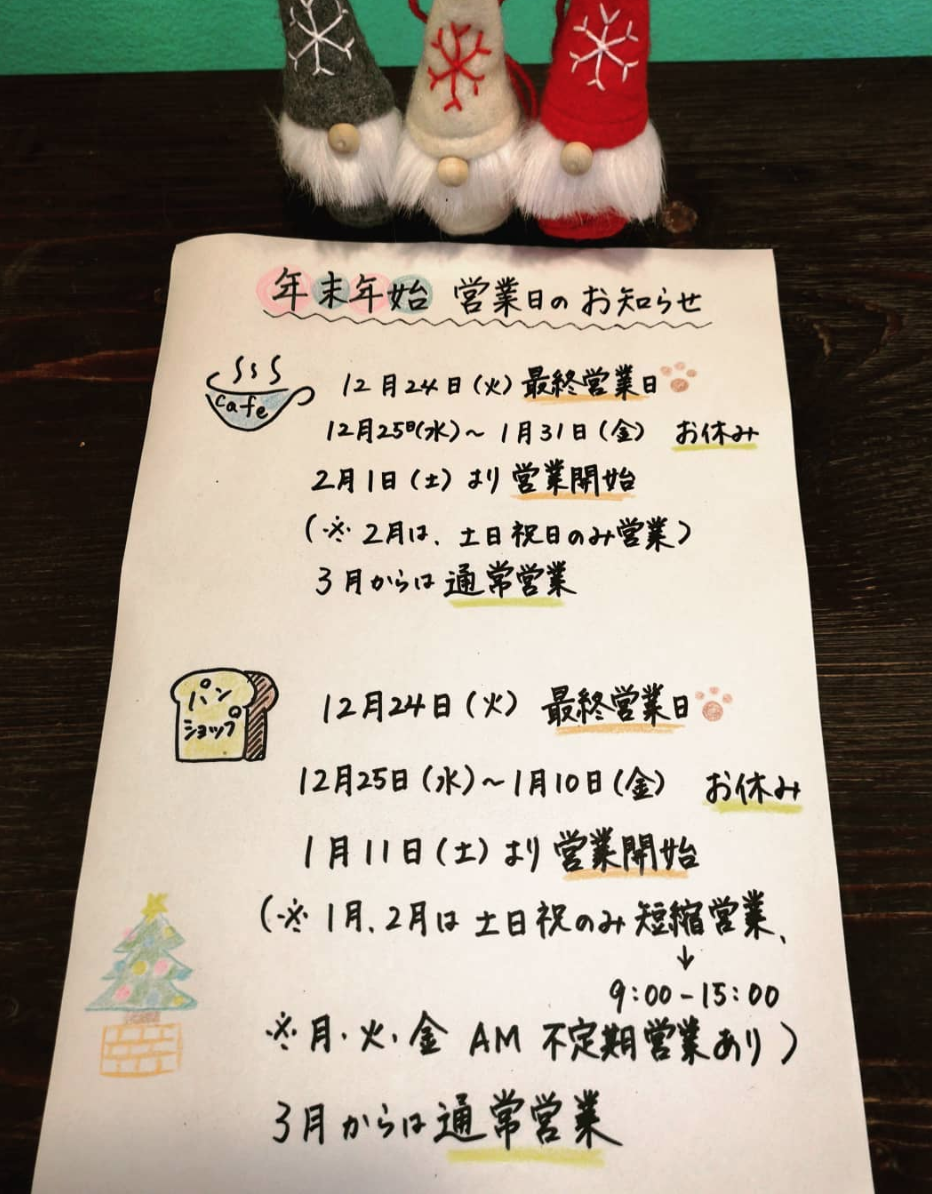 年末年始 営業日のお知らせ
cafe
12月24日(火) 最終営業日
12月25日(水)~ 1月31日(金) お休み
2月1日(土)より 営業開始
(※ 2月は、土日祝日のみ営業)
3月からは 通常営業
パン
ショップ
12月24日(火) 最終営業日
12月25日(水)~1月10日(金) お休み
1月11日(土)より 営業開始
(※ 1月、2月は 土日祝のみ 短縮営業、
↓
9:00-15:00
※月・火・金 AM 不定期営業あり)
3月からは 通常営業